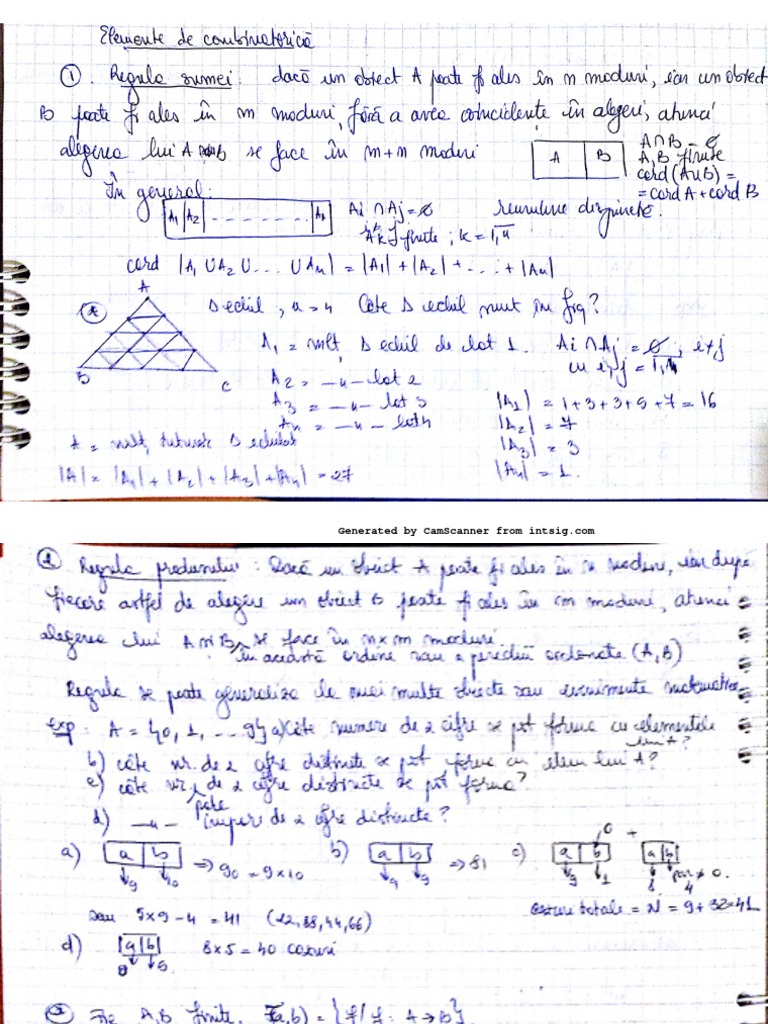 Elemente de combinatorică
① Regula sumei: dacă un obiect A poate fi ales în n moduri, iar un obiect
B poate fi ales în m moduri, fără a avea coincidente în alegeri, atunci
alegerea lui A sau B se face în m+n moduri
A B
A∩B = ∅
A, B finite
card (A∪B) =
= card A + card B
În general:
A₁ A₂ - - - - - - - Aₙ
Ai ∩ Aj = ∅
finite ; k = 1,n
reuniune disjunctă.
card |A₁ ∪ A₂ ∪ ... ∪ Aₙ| = |A₁| + |A₂| + ... + |Aₙ|
A
B
C
Δ echil, n = 4 Câte Δ echil sunt în fig?
A₁ = mulț. Δ echil de lat 1. Ai ∩ Aj = ∅, i≠j
cu i,j = 1,4
A₂ = —„— lat 2
A₃ = —„— lat 3
A₄ = —„— lat 4
|A₁| = 1+3+5+7 = 16
|A₂| = 7
|A₃| = 3
|A₄| = 1.
A = mulț. tuturor Δ echilat
|A| = |A₁| + |A₂| + |A₃| + |A₄| = 27
Generated by CamScanner from intsig.com
② Regula produsului: Dacă un obiect A poate fi ales în n moduri, iar după
fiecare astfel de alegere un obiect B poate fi ales în m moduri, atunci
alegerea lui A și B se face în n×m moduri
în această ordine sau a perechii ordonate (A,B)
Regula se poate generaliza la mai multe obiecte sau evenimente matematice
Exp: A = {0, 1, ... 9} a) câte numere de 2 cifre se pot forma cu elementele
lui A?
b) câte nr. de 2 cifre distincte se pot forma cu elem lui A?
c) câte nr. pare de 2 cifre distincte se pot forma?
d) —„— impare de 2 cifre distincte?
a) a b 9 10 ⇒ 90 = 9×10
b) a b 9 9 ⇒ 81
c) a b 0 9 1 + a b 8 par ≠ 0. 4
sau 5×9 - 4 = 41 (22,88,44,66)
cazuri totale = N = 9 + 32 = 41
d) a b 8 5 8×5 = 40 cazuri
Fie A,B finite. F(a,b) = {f/f: A→B}.